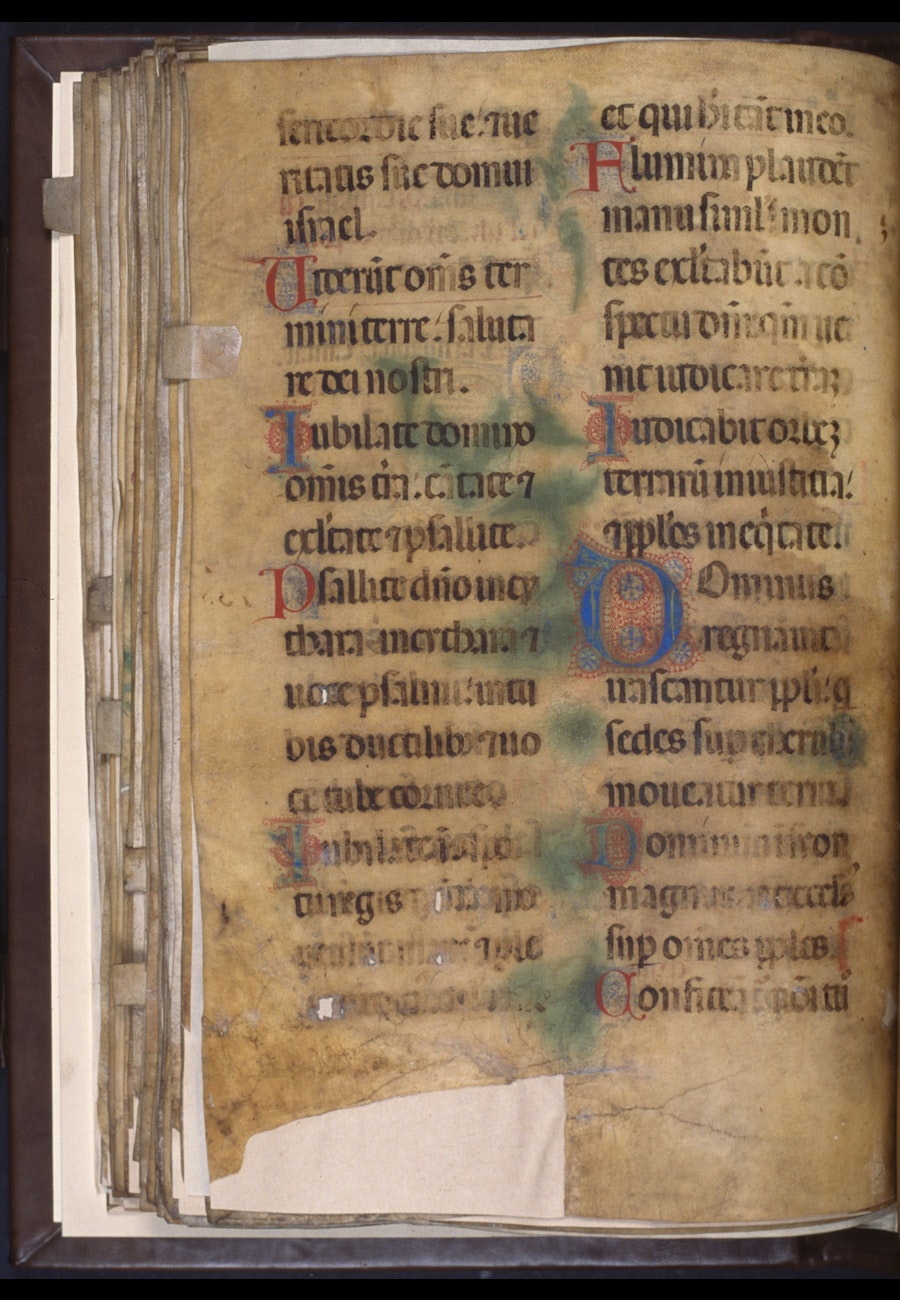 sericordie sue: ⁊ ue
ritatis sue domui
israel.
Uiderūt om̄s ter
mini terre: saluta
re dei nostri.
Iubilate domino
omnis t̄ra: cātate ⁊
exl̄tate ⁊ psallite.
Psallite dn̄o in cy
thara in cythara ⁊
uoce psalmi: in tu
bis ductilib; ⁊ uo
ce tube cornee
Iubilate
tu regis
et qui hitāt in eo.
Flumina plaudēt
manu siml̄: mon
tes exl̄tabūt a cō
spectu dn̄i qm̄ ue
nit iudicare t̄rā
Iudicabit orbez
terrarū in iusticia:
⁊ pplōs in eq̄tate.
Dominus
regnauit
irascantur ppl̄i: q
sedes sup cherubi
moueatur terra
Dominus in sion
magnus excels
sup omnes pplōs
Confiteāt nōi tu